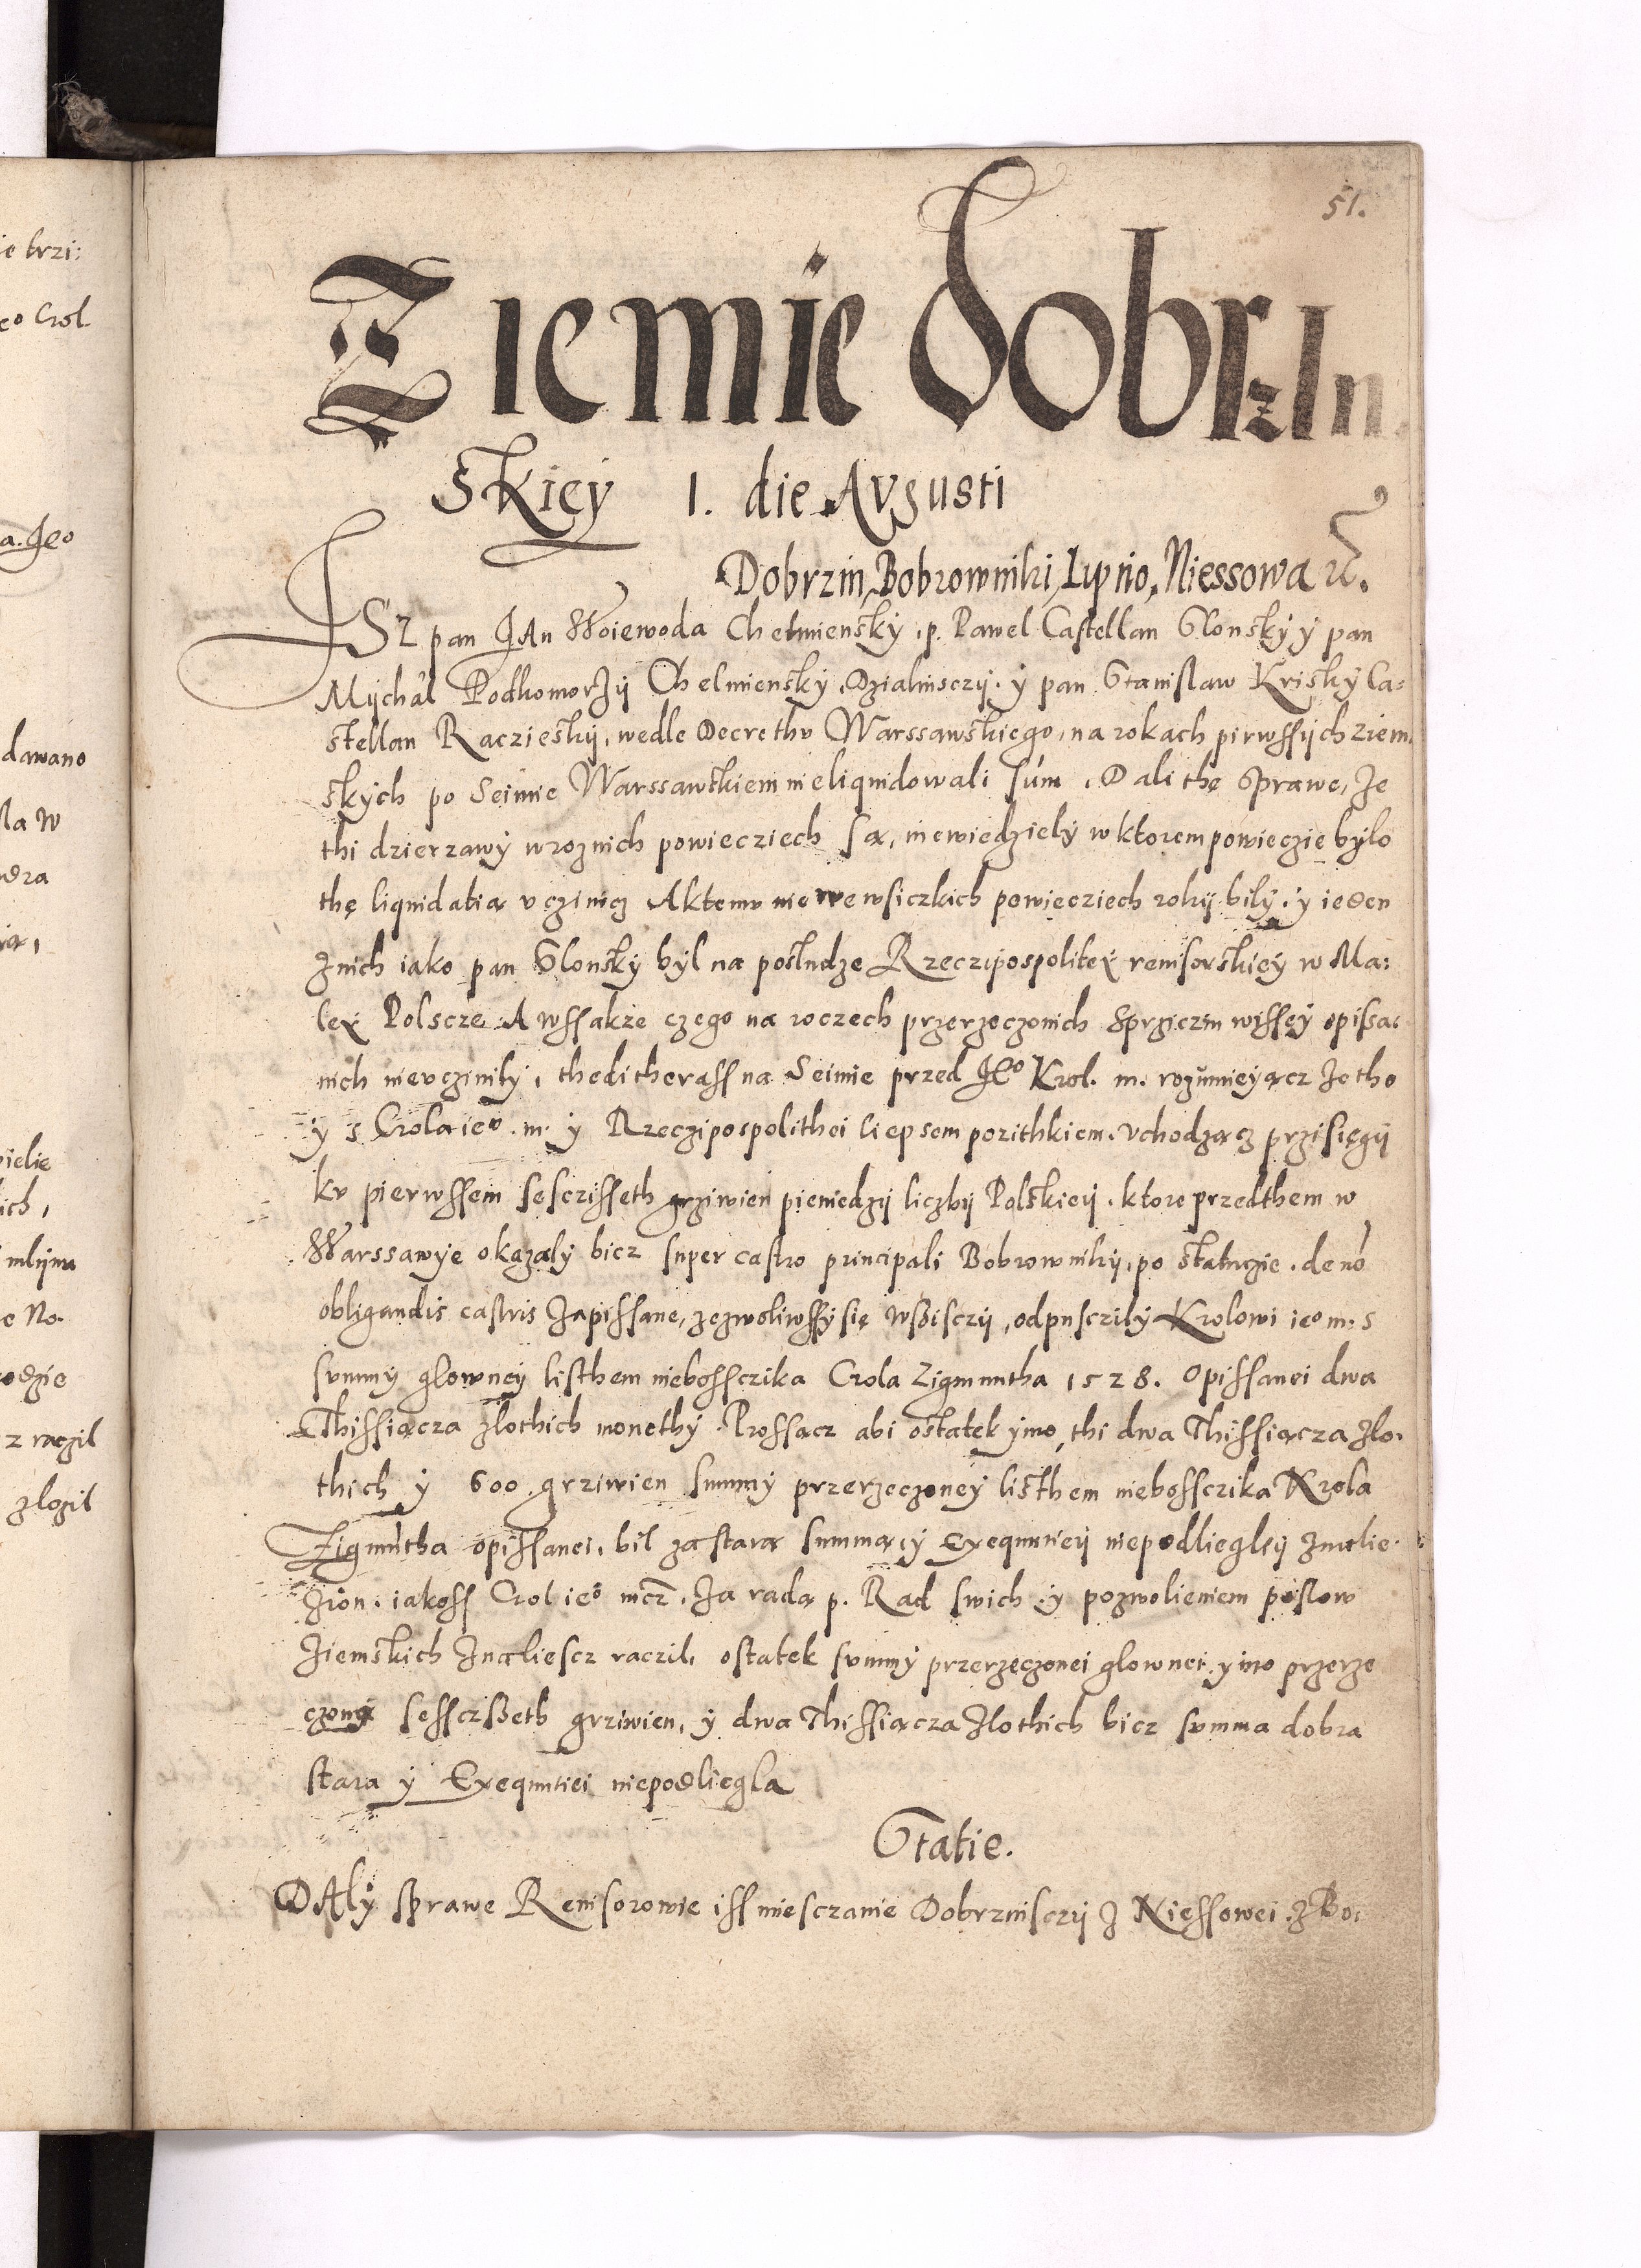 51.
Ziemie dobrzIn
skiey 1. die Avgusti
Dobrzin, Bobrowniki, Lipno, Niessowa etc.
ISz pan JAn Woiewoda Chelmiensky, p. Pawel Castellan Slonsky y pan
Mychal Podkomorzy Chelmiensky, Dzialinsczy. y pan Stanislaw Krisky Ca=
stellan Raciesky, wedle Decrethv Warssawskiego, na rokach pirwssych ziem
skych po Seimie Warssawskiem nieliquidowali sum. Dali thę sprawe, Ze
thi dzierzawy wroznich powiecziech są, niewiedziely wktorem powieczie bylo
thę liquidatią vczinicz Aktemv nie we wsiczkich powiecziech roky bily. y ieden
znich iako pan Slonsky byl na posludze Rzeczipospolitey reuisorskiey w Ma:
ley Polscze. A wssakze czego na roczech przerzeczonich Sprziczin wissey opisa=
nich nievczinily, theditherass na Seimie przed Jeo Krol. m. rozumieyącz Ze tho
y s Crola ieo. m. y Rzeczipospolithei liepsem pozithkiem. Vchodzącz przisięgy
kv pierwssem sesczisseth grziwien pieniedzy liczby Polskiey. ktore przedthem w
Warssawye okazaly bicz super castro principali Bobrowniky, po statucie. de no
obligandis castris Zapissane, zezwoliwssy się wszisczy, odpusczily Krolowi ieo m. s
svmmy glowney listhem niebossczika Crola Zigmuntha 1528. Opissanei dwa
Thissiącza zlothich monethy. Prossacz abi ostatek ymo thi dwa Thissiącza zlo.
thich y 600 grziwien summy przerzeczoney listhem niebossczika Krola
Zigmuntha opissanei, bil za starą summą, y Exequutiey niepodliegley znalie.
zion. iakoss Crol ieo mcz. Za radą p. Rad swich. y pozwolieniem poslow
Ziemskich Znaliescz raczil, ostatek svmmy przerzeczonei glownei, y mo przerze
czoną sessczszeth grziwien, y dwa Thissiącza Zlothich bicz svmma dobra
stara y Exequutiei niepodliegla
Statie.
DAly sprawe Reuisorowie iss miesczanie Dobrzinsczy z Niessowei. z Bo: